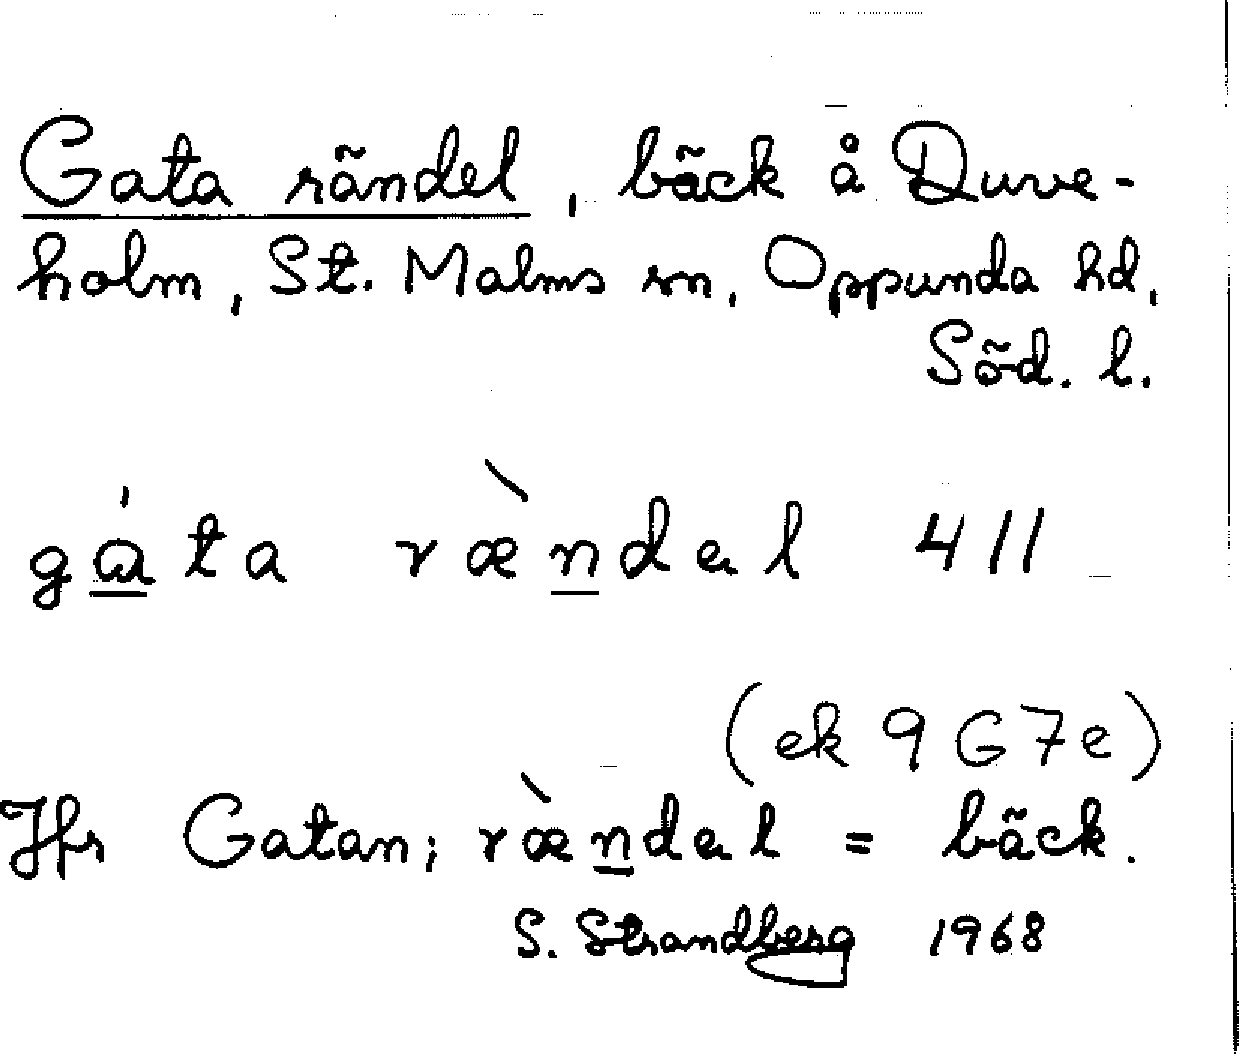 Gata rändel, bäck å Duve-
holm, St. Malms sn, Oppunda hd,
Söd. l.
gá̱ta ræ̀ṉdəl 411
(ek 9 G 7 e)
Jfr Gatan; ræ̀ṉdəl = bäck.
S. Strandberg 1968